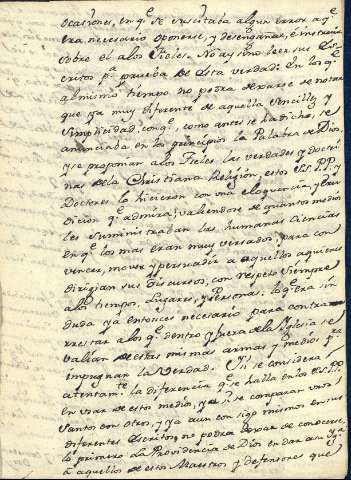 ocasiones, en q.e se suscitaba algun error a q.e
era necesario oponerse, y desengañar, é instruir
sobre el a los Fieles. No ay sino leer sus Es-
critos p.a prueba de esta verdad. En los q.e
al mismo tiempo no podra dexarse de notar
que ya muy diferente de aquella sencillez y
simplicidad, con q.e, como antes se ha dicho, se
anunciaba en los principios la Palabra de Dios,
y se proponian a los Fieles, las verdades y doctri-
nas de la Christiana Religion, estos S.S. P.P. y
Doctores lo hicieron con una eloquencia, y Eru-
dicion q.e admira; valiendose de quantos medios
les suministraban las humanas Ciencias
en q.e los mas eran muy versados, para con-
vencer, mover y persuadir a aquellos a quienes
dirigian sus discursos, con respeto siempre
a los tiempos, Lugares, y Personas. lo q.e era sin
duda ya entonces necesario para contra-
rrestar a los q.e dentro y fuera de la Yglesia se
valian de estas mismas armas y medios p.a
impugnar la verdad. Y si se considera
atentam.te la diferencia q.e se halla en los S.S. P.P.
en usar de estos medios, ya si se comparan unos
Santos con otros, y ya aun consigo mismos en sus
diferentes Escritos, no podra dexar de conocerse,
lo primero La Providencia de Dios en dar a su Yg.a
a aquellos de estos Maestros y defensores que